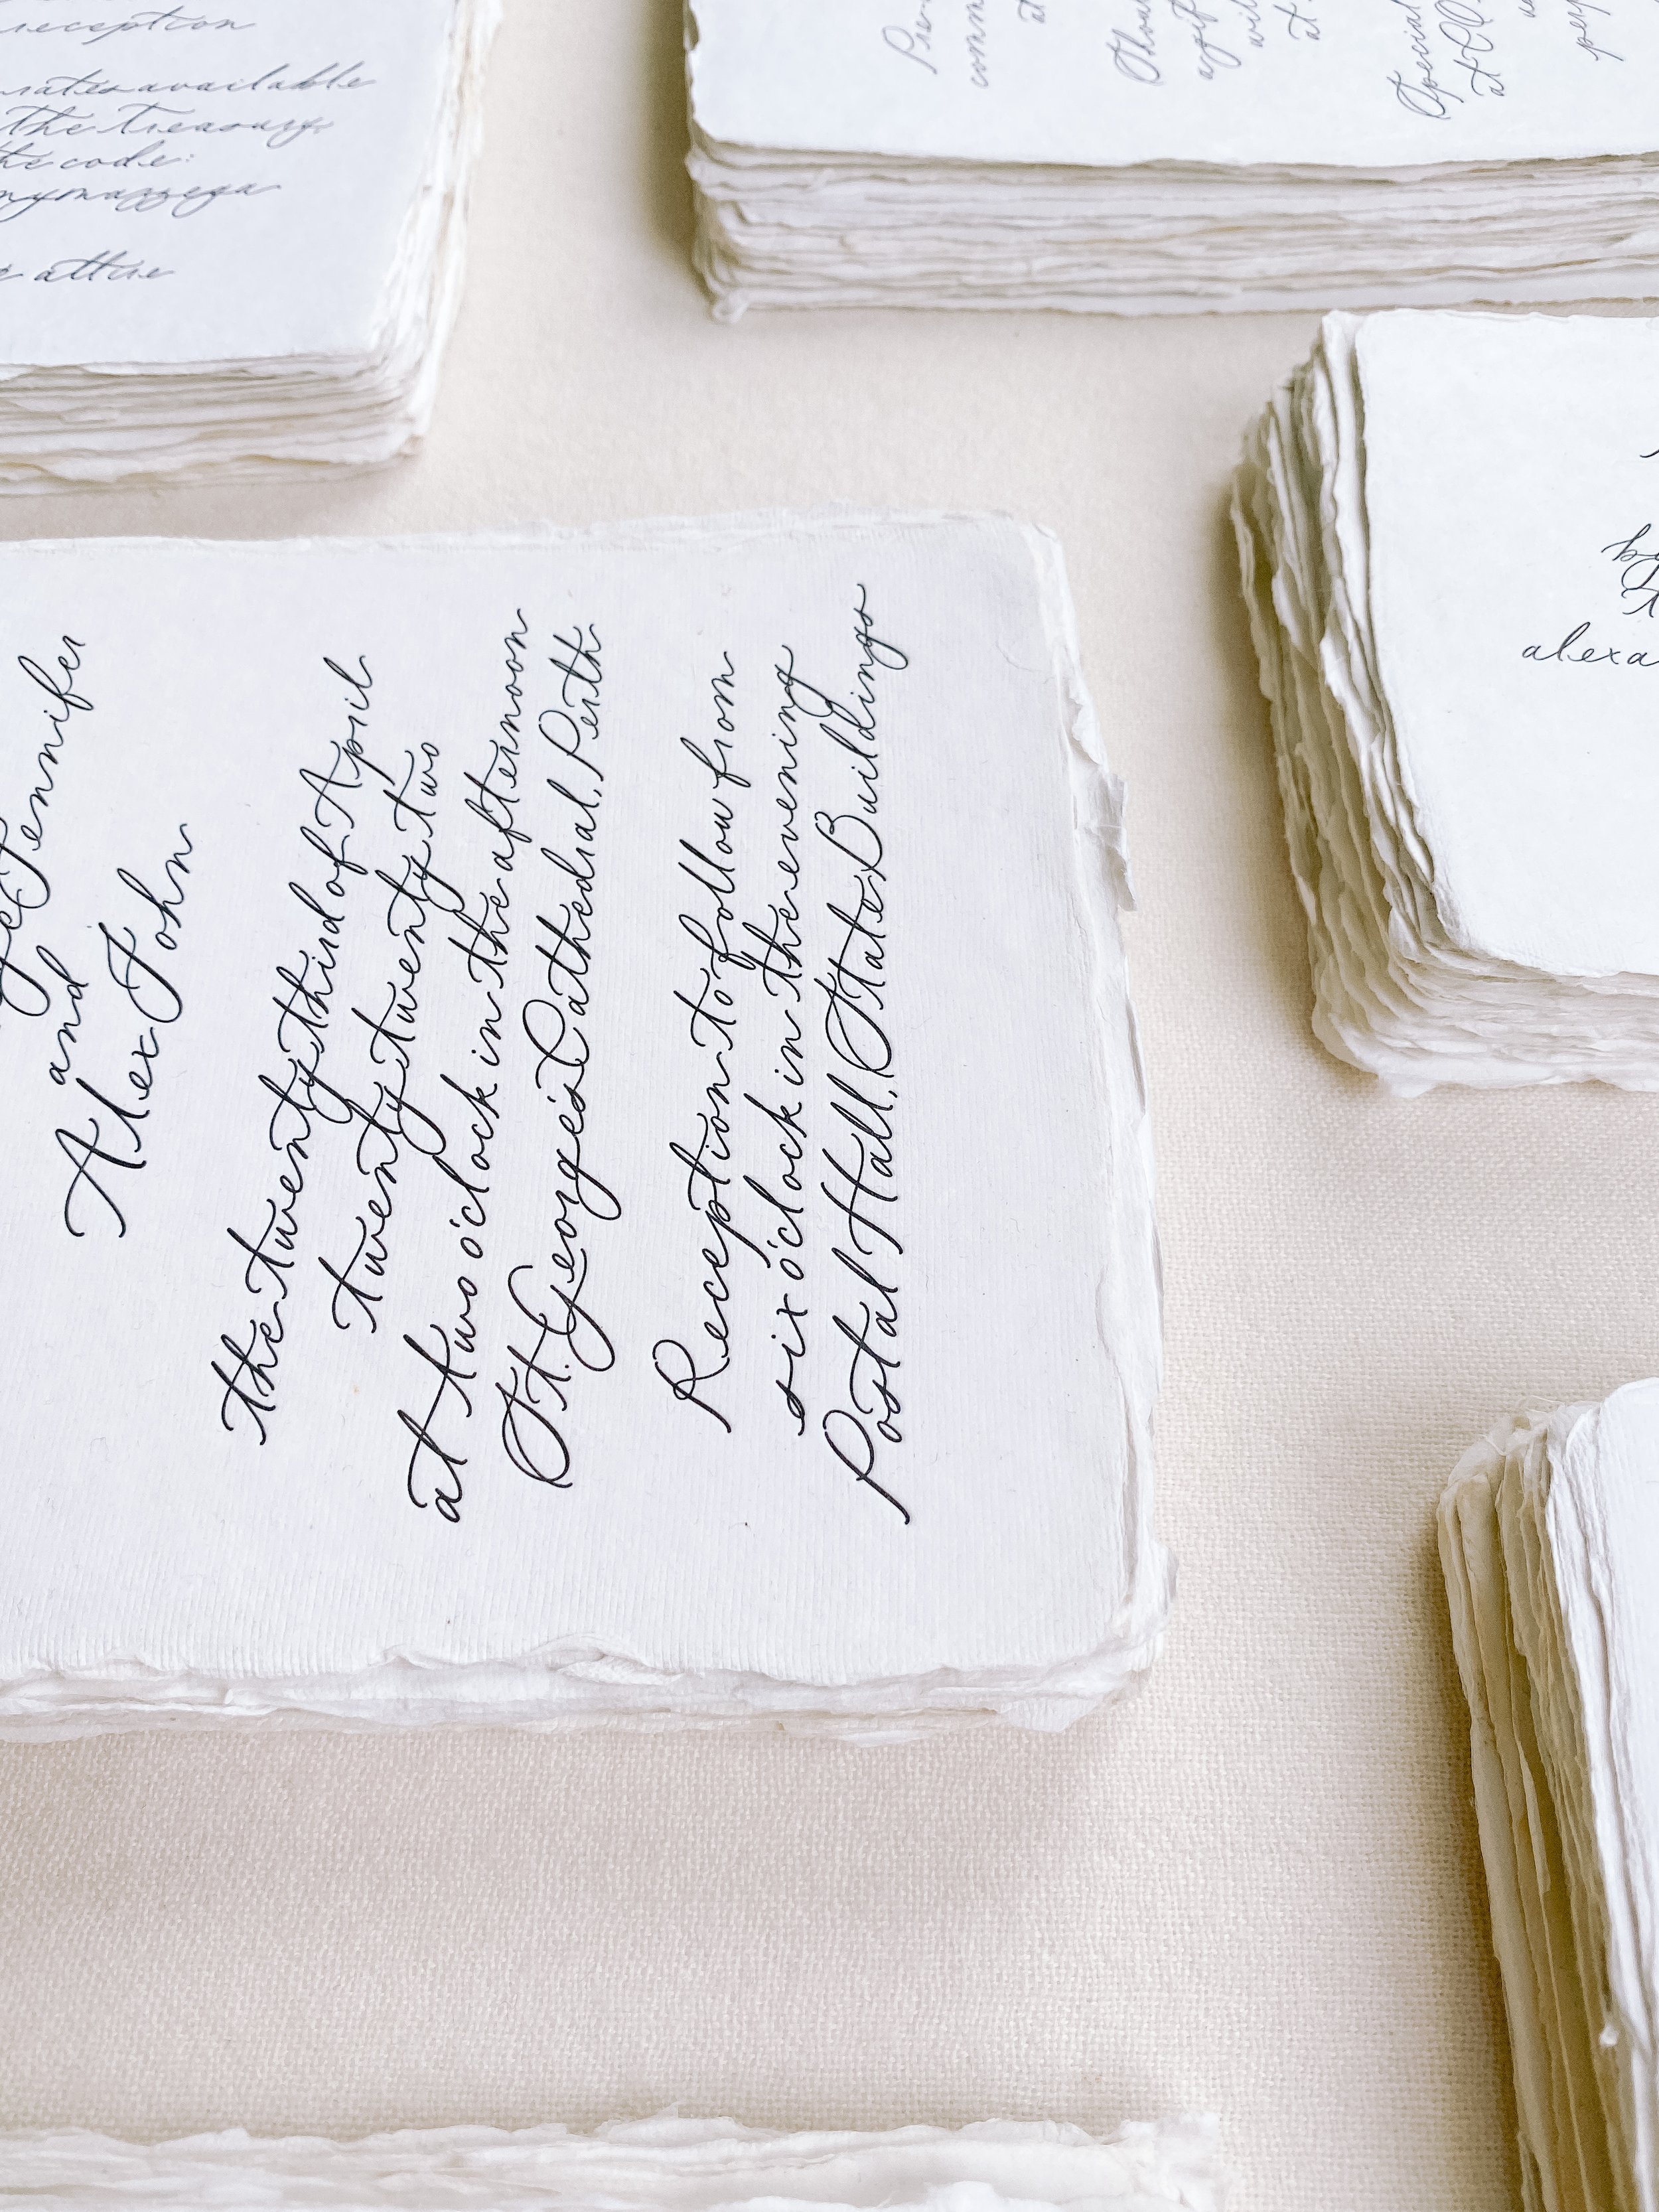 reception
rates available
the treasury
the code:
mymazzega
attire
at
at
Special
at
Jennifer
and
Alex John
the twenty third of April
twenty twenty two
at two o'clock in the afternoon
St. George's Cathedral, Perth
Reception to follow from
six o'clock in the evening
Postal Hall, State Buildings
by
alexa